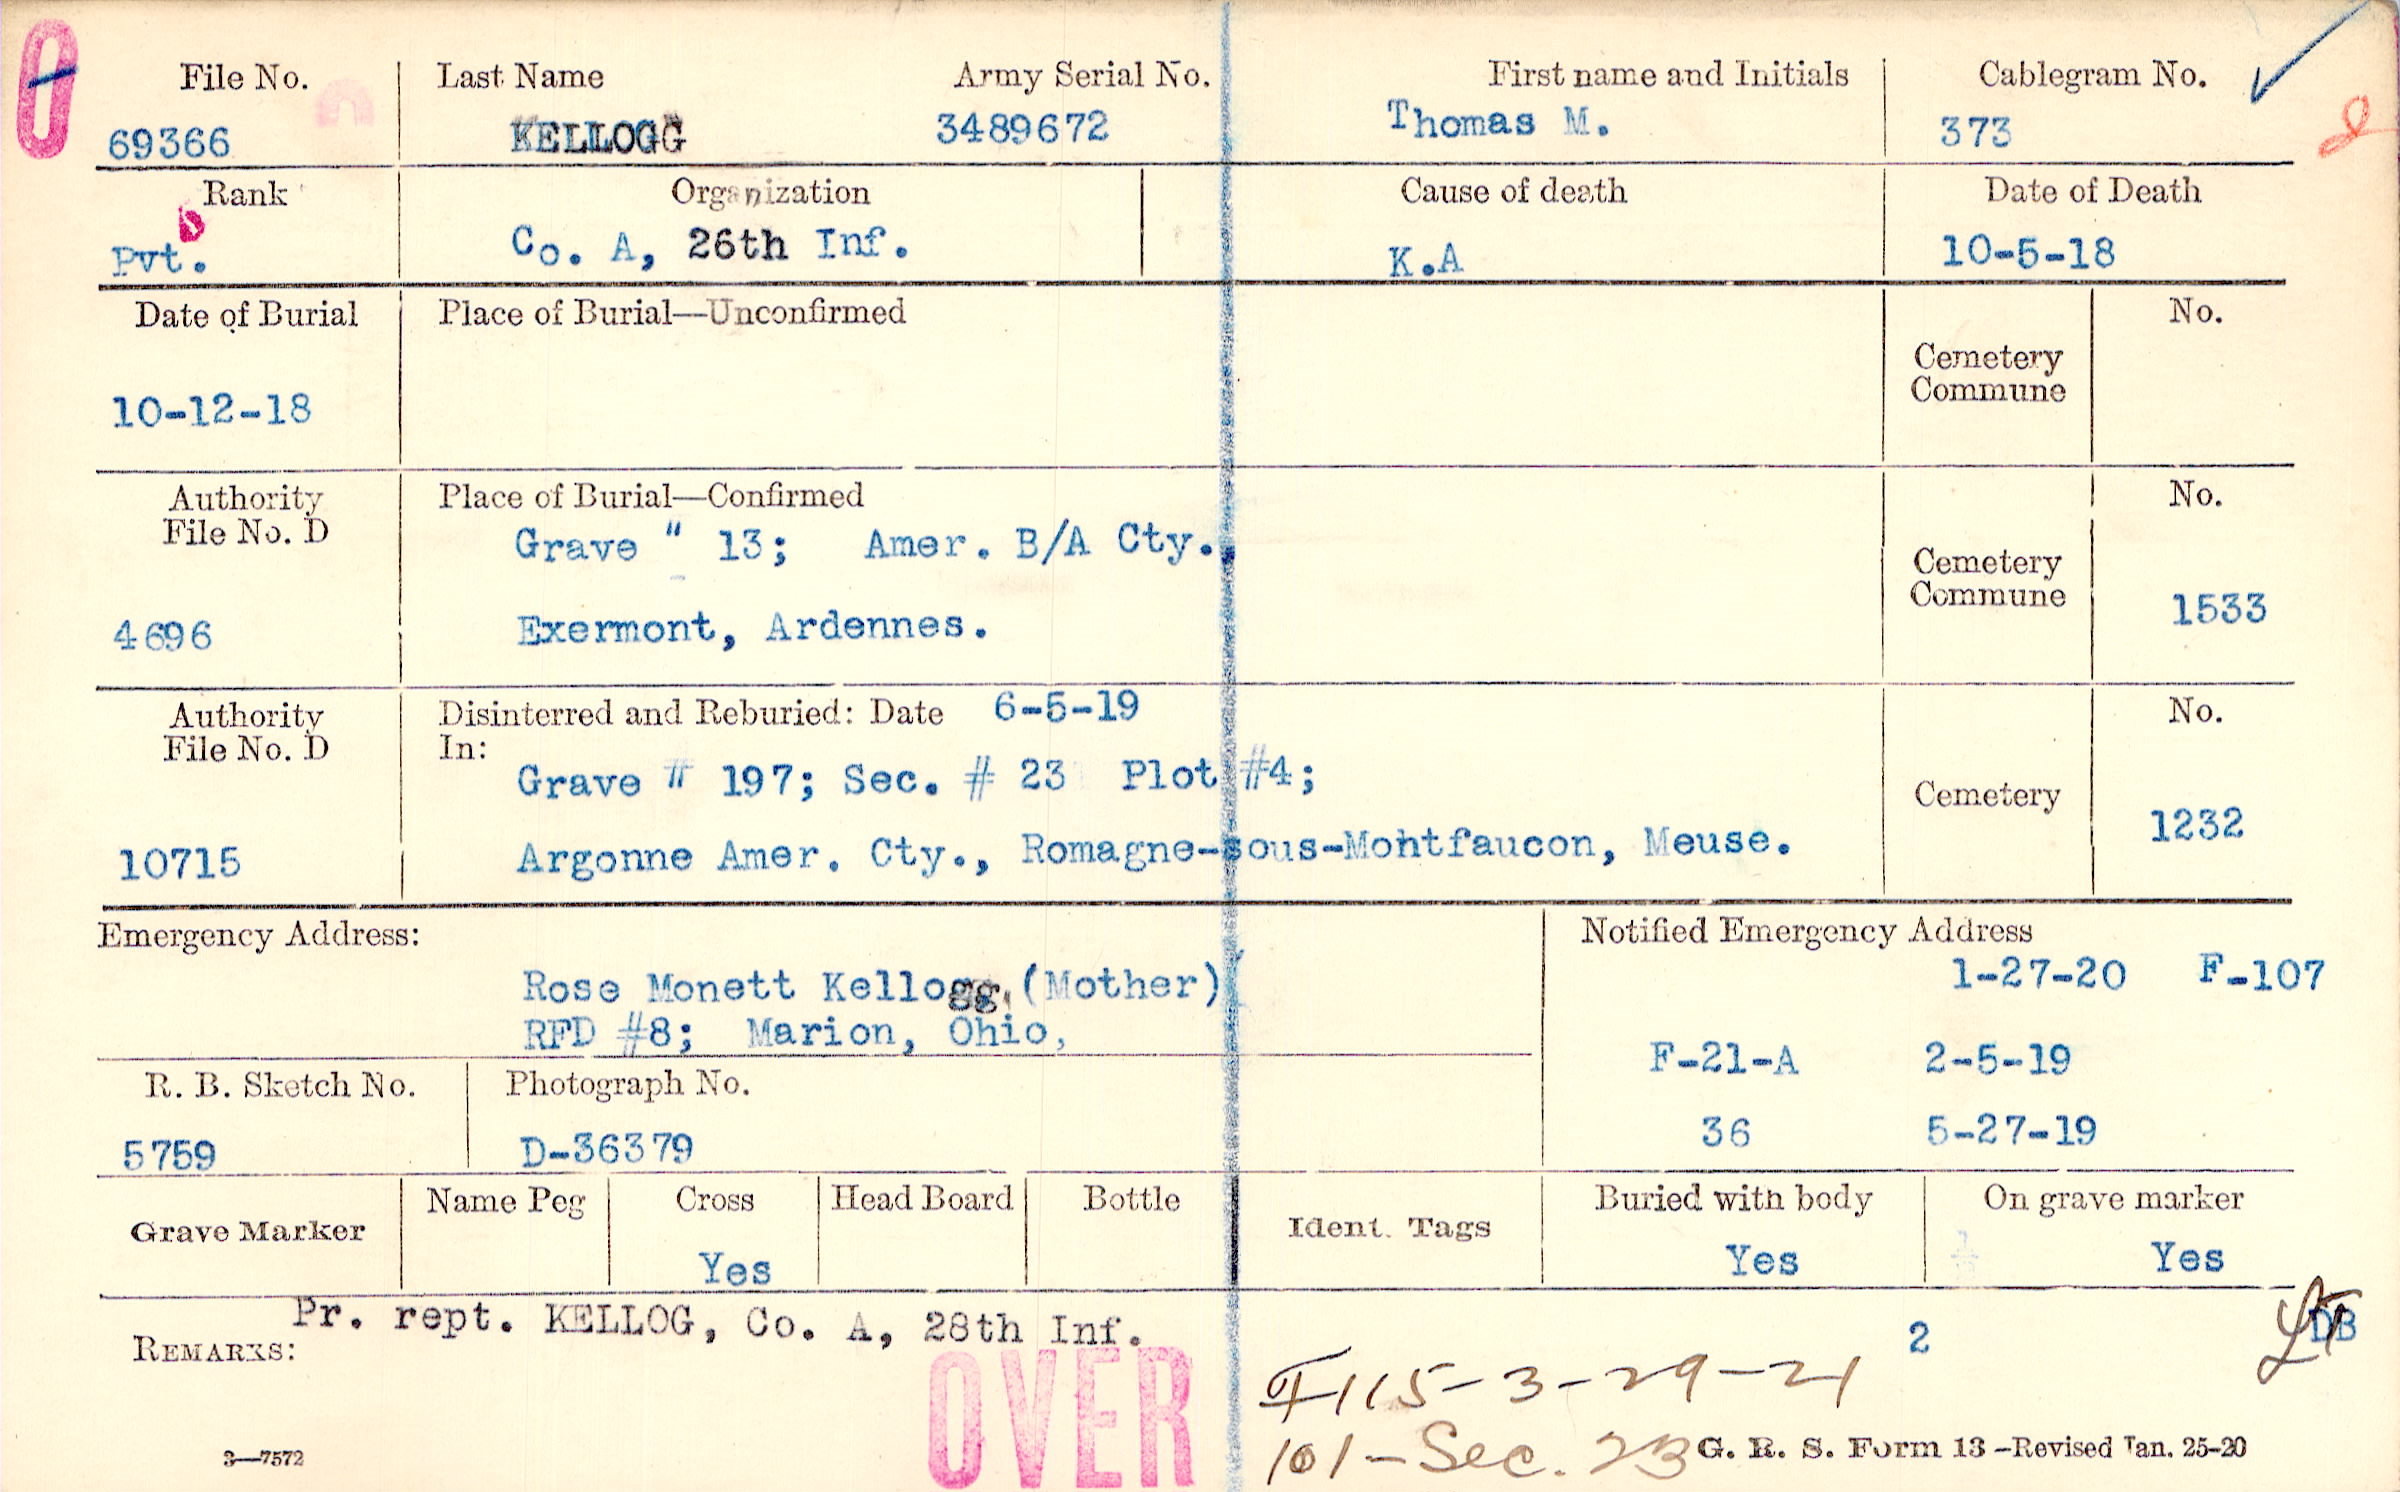 File No. Last Name Army Serial No. First name and Initials Cablegram No.
69366 KELLOGG 3489672 Thomas M. 373
Rank Organization Cause of death Date of Death
Pvt. Co. A, 26th Inf. K.A 10-5-18
Date of Burial Place of Burial—Unconfirmed No.
Cemetery
Commune
10-12-18
Authority Place of Burial—Confirmed No.
File No. D
Grave " 13; Amer. B/A Cty.,
Cemetery
Commune
4696 Exermont, Ardennes. 1533
Authority Disinterred and Reburied: Date 6-5-19 No.
File No. D In:
Grave # 197; Sec. # 23 Plot #4;
Cemetery
10715 Argonne Amer. Cty., Romagne-sous-Montfaucon, Meuse. 1232
Emergency Address: Notified Emergency Address
Rose Monett Kellogg (Mother) 1-27-20 F-107
RFD #8; Marion, Ohio,
F-21-A 2-5-19
R. B. Sketch No. Photograph No.
5759 D-36379 36 5-27-19
Grave Marker Name Peg Cross Head Board Bottle Ident. Tags Buried with body On grave marker
Yes Yes Yes
Pr. rept. KELLOG, Co. A, 28th Inf.
REMARKS: 2 DB
OVER
115-3-29-21
101-Sec. 23
3—7572 G. R. S. Form 13—Revised Jan. 25-20